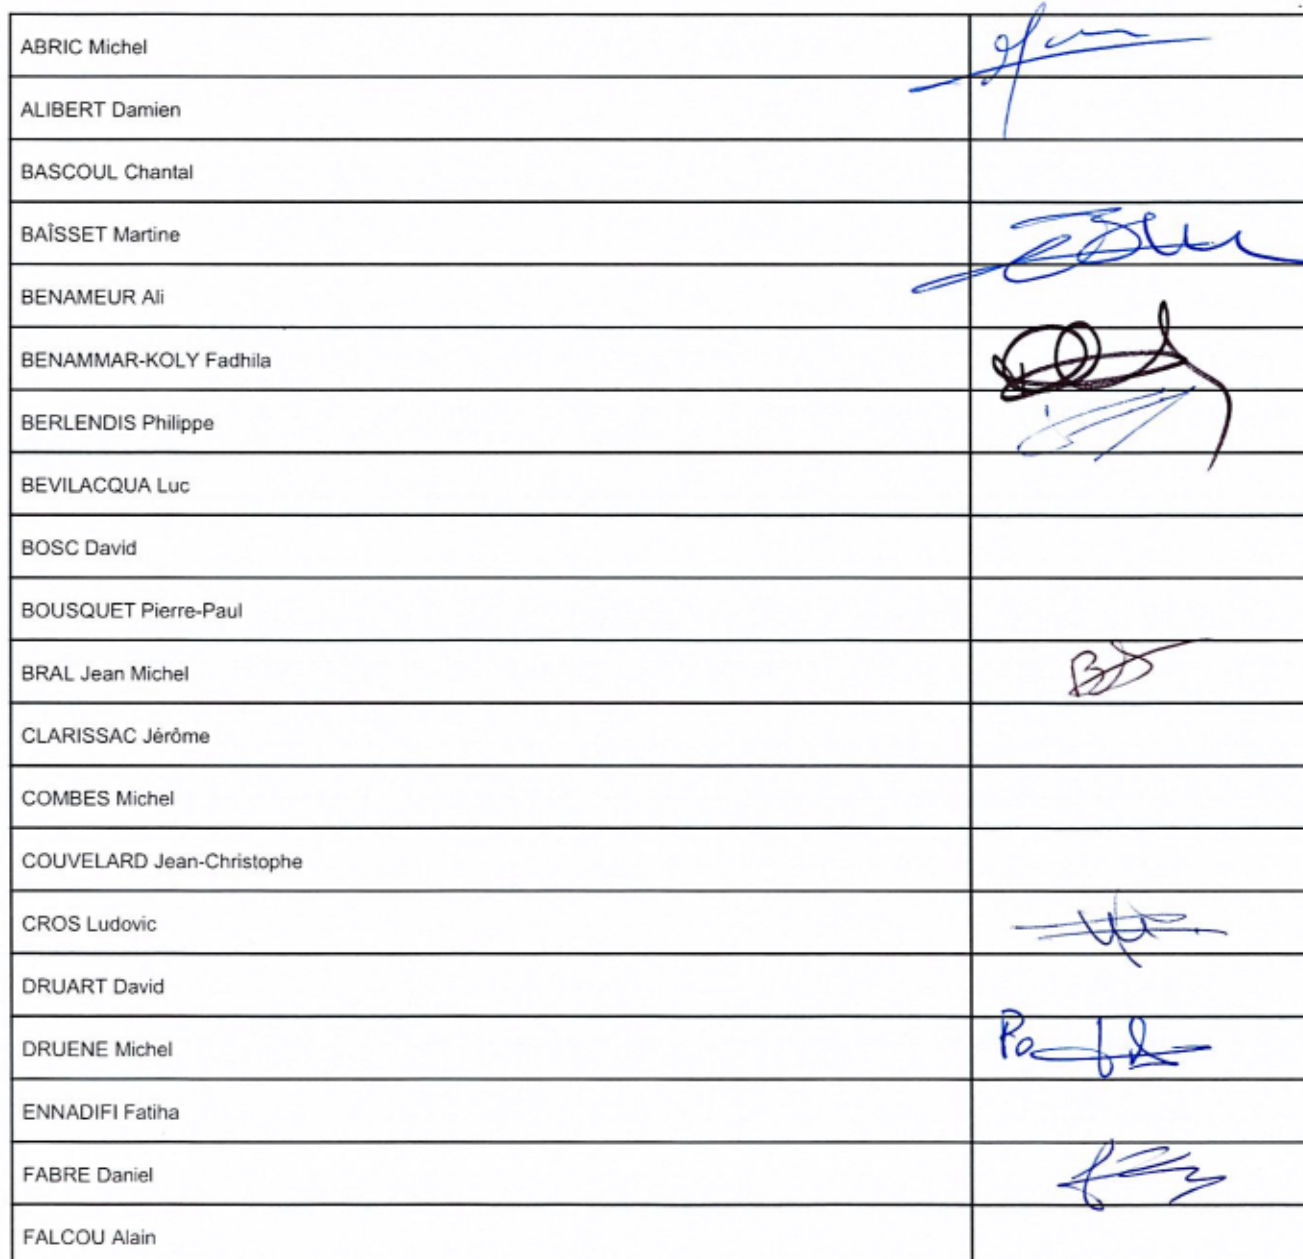 ABRIC Michel
ALIBERT Damien
BASCOUL Chantal
BAÎSSET Martine
BENAMEUR Ali
BENAMMAR-KOLY Fadhila
BERLENDIS Philippe
BEVILACQUA Luc
BOSC David
BOUSQUET Pierre-Paul
BRAL Jean Michel
CLARISSAC Jérôme
COMBES Michel
COUVELARD Jean-Christophe
CROS Ludovic
DRUART David
DRUENE Michel Po
ENNADIFI Fatiha
FABRE Daniel
FALCOU Alain